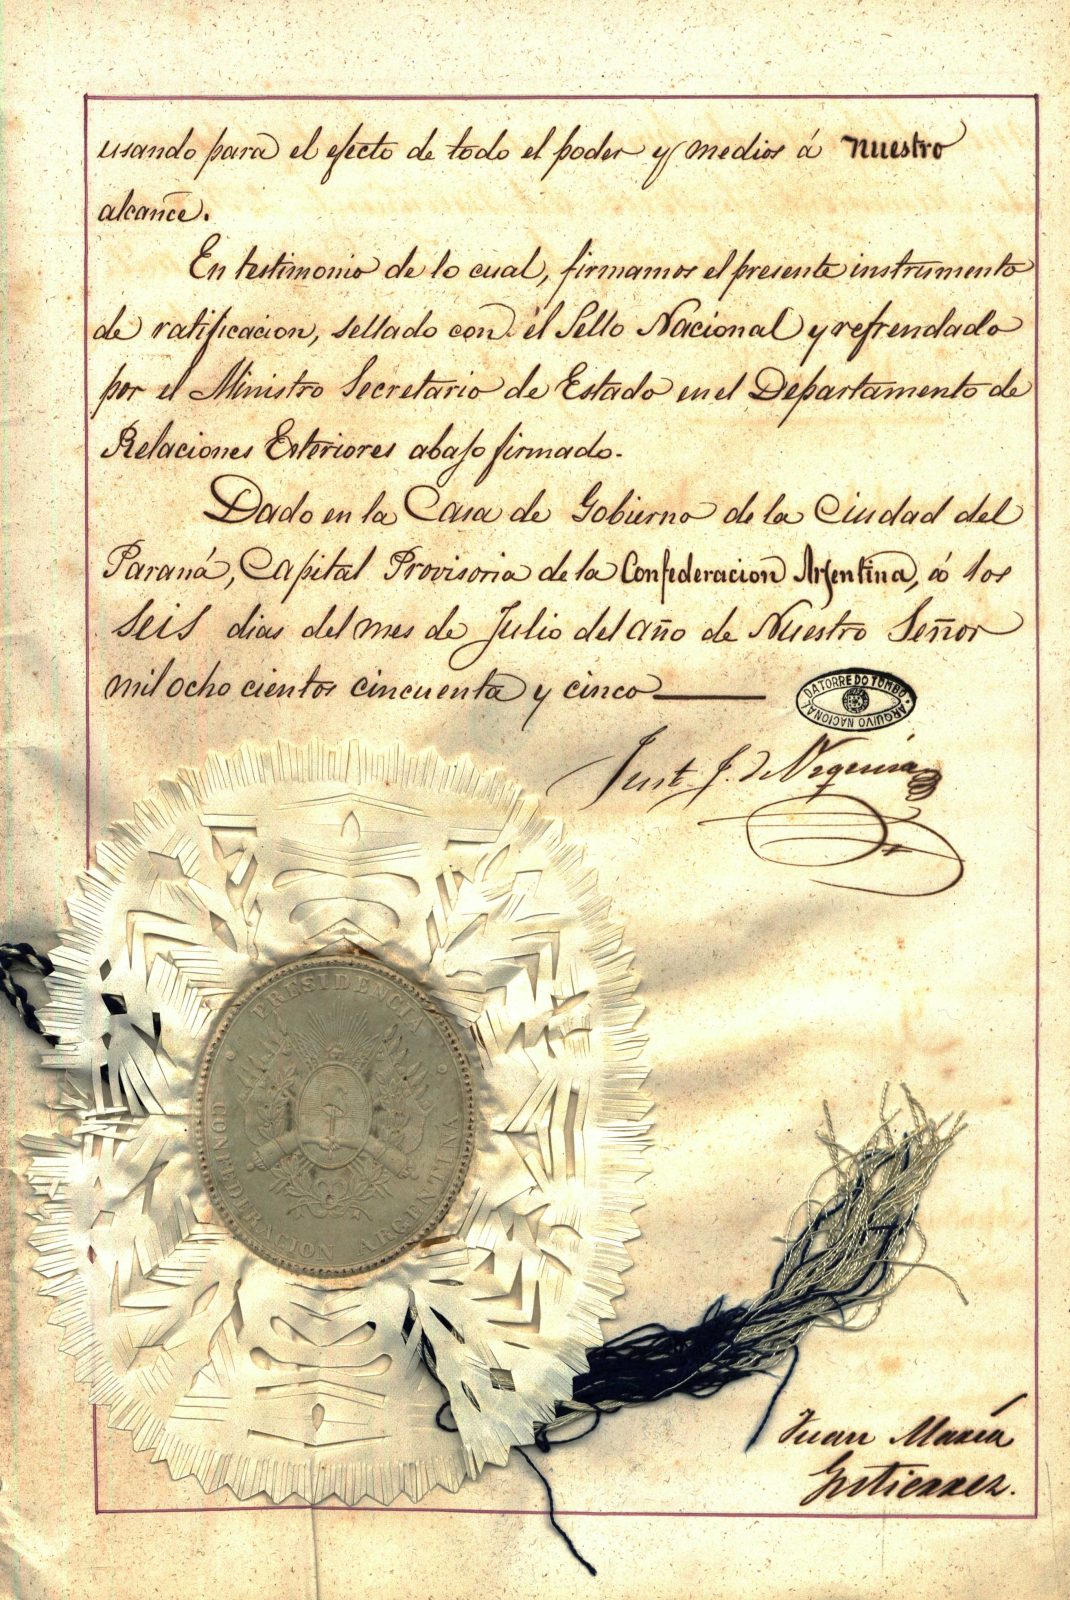 usando para el efecto de todo el poder y medios á nuestro
alcance.
En testimonio de lo cual, firmamos el presente instrumento
de ratificacion, sellado con el Sello Nacional y refrendado
por el Ministro Secretario de Estado en el Departamento de
Relaciones Exteriores abajo firmado.
Dado en la Casa de Gobierno de la Ciudad del
Paraná, Capital Provisoria de la Confederacion Argentina, á los
seis dias del mes de Julio del año de Nuestro Señor
mil ocho cientos cincuenta y cinco
DA TORRE DO TOMBO
ARQUIVO NACIONAL
Just. J. de Urquiza
PRESIDENCIA
CONFEDERACION ARGENTINA
Juan María
Gutierrez.